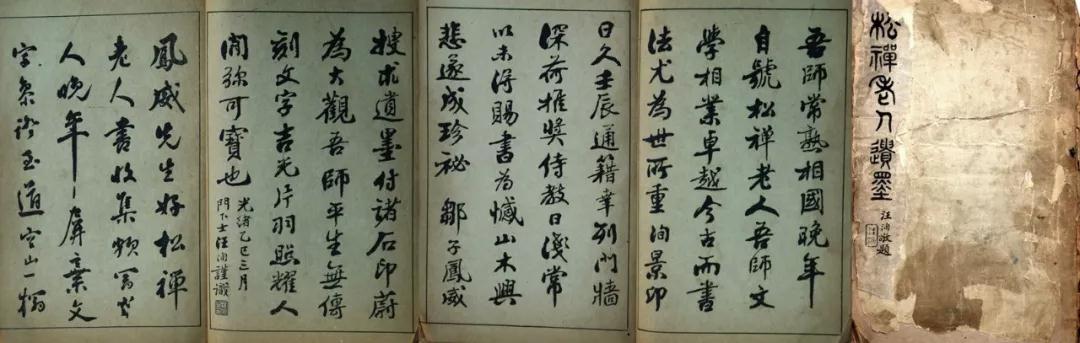 松禪老人遺墨
汪洵敬題
吾師常熟相國晚年
自號松禪老人吾師文
學相業卓越今古而書
法尤為世所重洵景卬
日久壬辰通籍幸列門牆
深荷推獎侍教日淺常
以未得賜書為憾山木興
悲遂成珍祕鄒子鳳威
搜求遺墨付諸石印蔚
為大觀吾師平生無傳
刻文字吉光片羽照耀人
間弥可寶也
光緒乙巳三月
門下士汪洵謹識
鳳威先生好松禪
老人書收集頗富
人晚年屏棄文
字參
道空山一